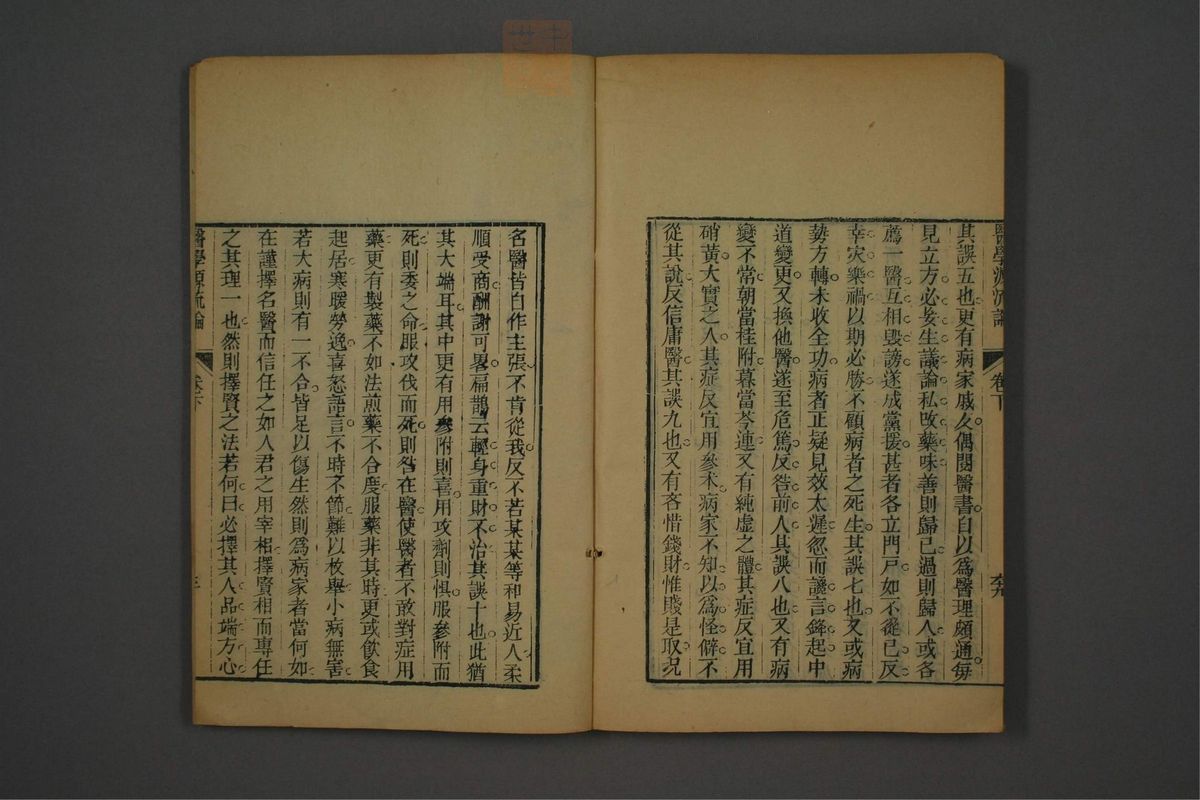 醫學源流論 卷下
其誤五也更有病家戚友偶閱醫書自以爲醫理頗通每
見立方必妄生議論私改藥味善則歸己過則歸人或各
薦一醫互相毀謗遂成黨援甚者各立門戸如不從己反
幸灾樂禍以期必勝不顧病者之死生其誤七也又或病
勢方轉未收全功病者正疑見效太遲忽而讒言鋒起中
道變更又換他醫遂至危篤反咎前人其誤八也又有病
變不常朝當桂附暮當芩連又有純虛之體其症反宜用
硝黃大實之人其症反宜用參朮病家不知以爲怪僻不
從其說反信庸醫其誤九也又有吝惜錢財惟賤是取况
名醫皆自作主張不肯從我反不若某某等和易近人柔
順受商酬謝可畧扁鵲云輕身重財不治其誤十也此猶
其大端耳其中更有用參附則喜用攻劑則懼服參附而
死則委之命服攻伐而死則咎在醫使醫者不敢對症用
藥更有製藥不如法煎藥不合度服藥非其時更或飮食
起居寒暖勞逸喜怒語言不時不節難以枚舉小病無害
若大病則有一不合皆足以傷生然則爲病家者當何如
在謹擇名醫而信任之如人君之用宰相擇賢相而專任
之其理一也然則擇賢之法若何曰必擇其人品端方心
醫學源流論 卷下